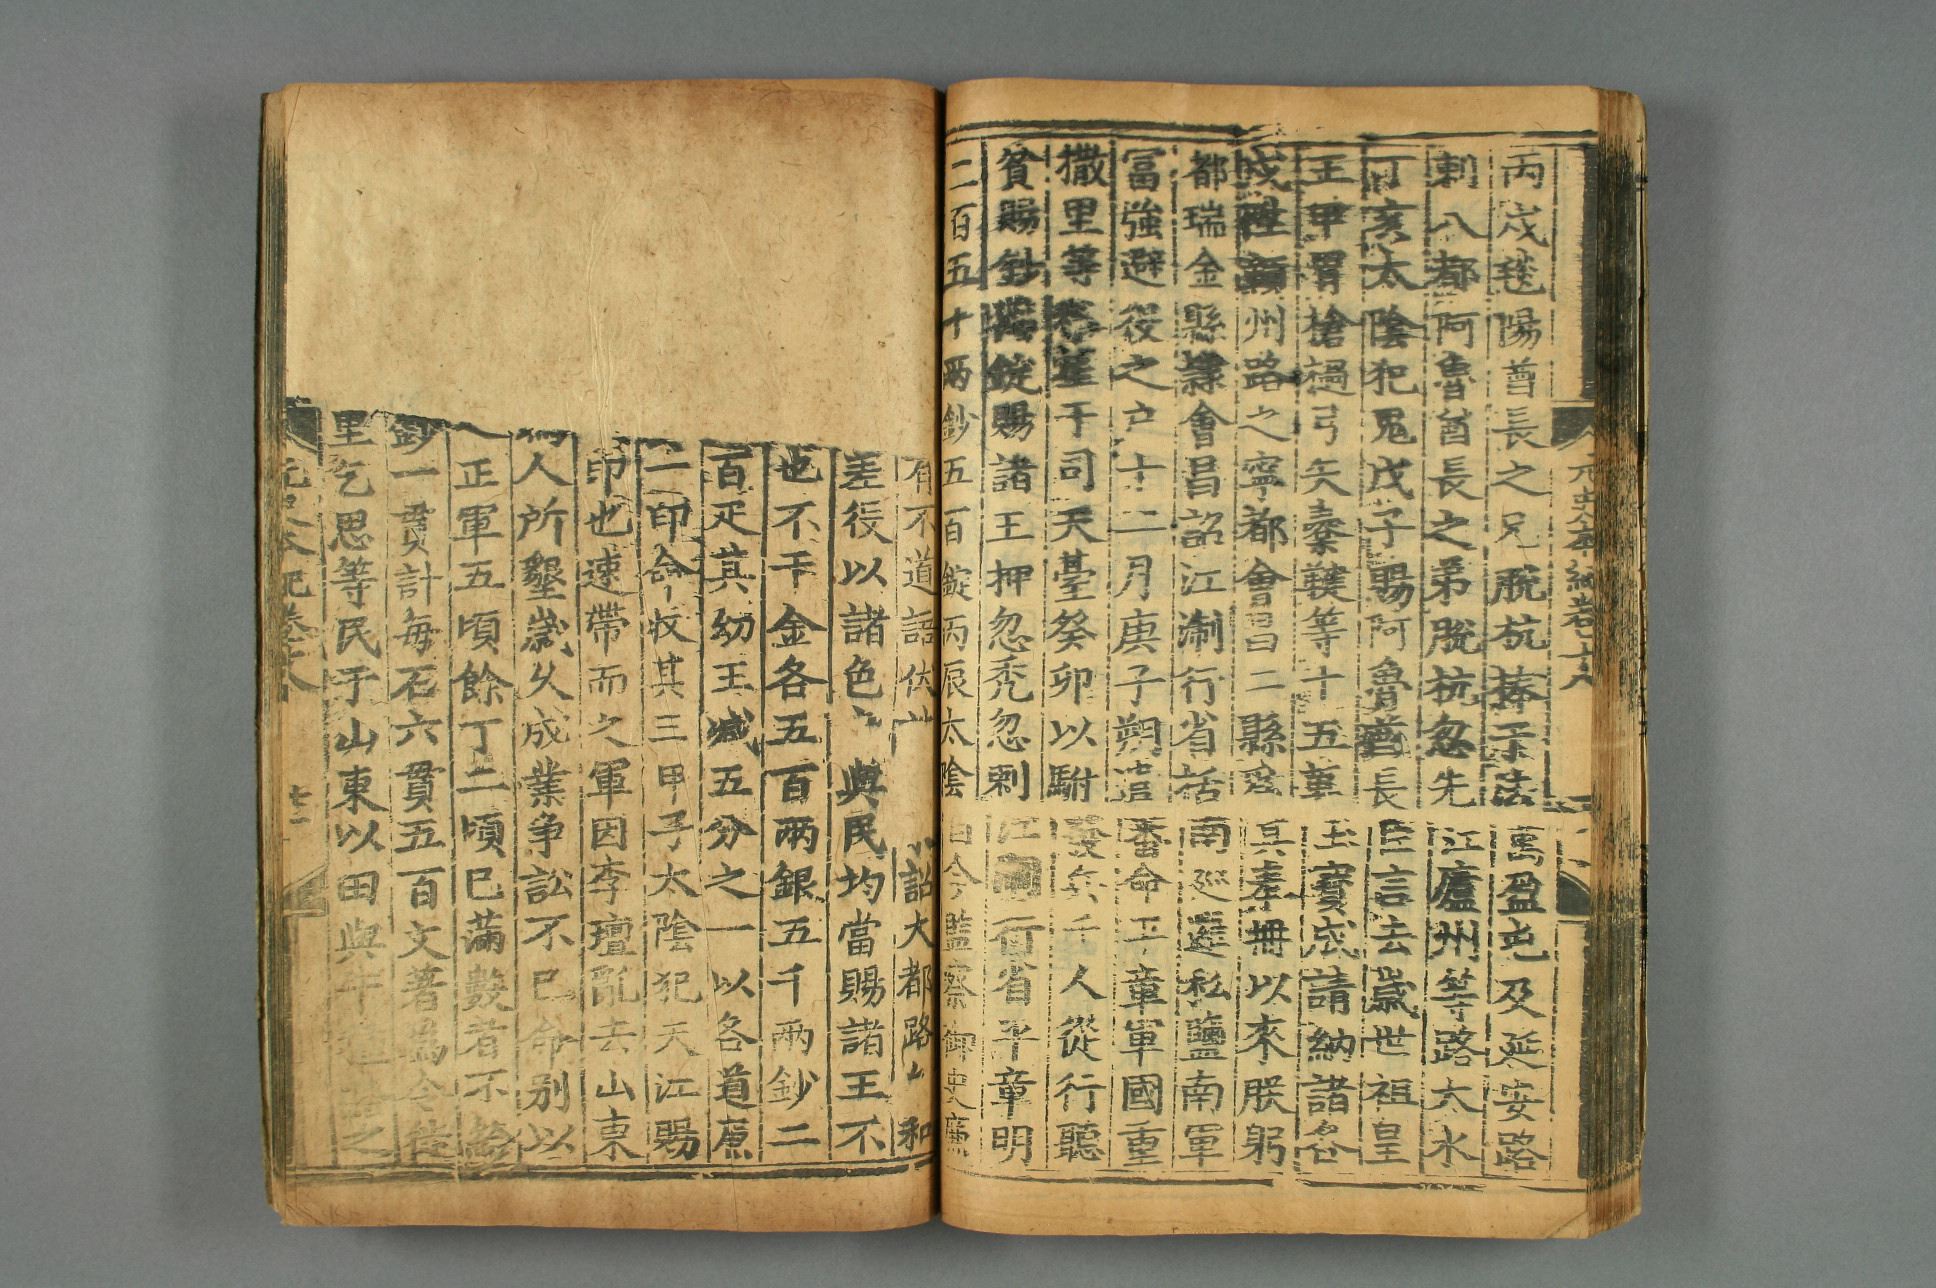 元史本紀卷十八
丙戌毯陽酋長之兄脫杭捧于法
剌八都阿魯酋長之弟脫杭忽先
丁亥太陰犯鬼戊子賜阿魯酋長
王甲胄槍撾弓矢櫜鞬等十五事
州路之寧都會昌二縣
都瑞金縣隸會昌詔江浙行省括
富強避役之戶十二月庚子朔
撒里等 于司天臺癸卯以駙
貧賜鈔 錠賜諸王押忽禿忽剌
二百五十兩鈔五百錠丙辰太陰
萬盈屯及延安路
江廬州等路大水
臣言去歲世祖皇
玉寶成請納諸各
兵奉冊以來朕躬
南巡邏私鹽南軍
番命平章軍國重
發兵千人從行聽
江 行省平章明
自今監察御史廉
有不道語伏 詔大都路 和
差役以諸色 與民均當賜諸王不
也不干金各五百兩銀五千兩鈔二
百疋其幼王減五分之一以各道廉
一印命收其三甲子太陰犯天江賜
印也速帶而之軍因李璮亂去山東
人所墾歲久成業爭訟不已命別以
正軍五頃餘丁二頃已滿數者不給
鈔一貫計每石六貫五百文著為令徙
里乞思等民于山東以田與牛 之
元史本紀卷十八 十一